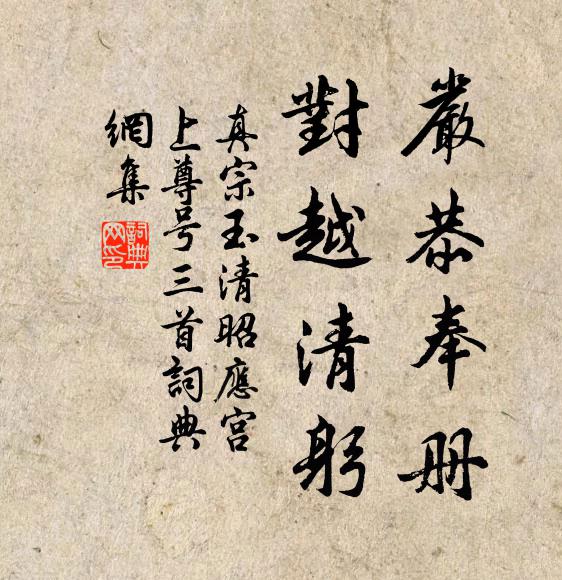 嚴恭奉册
對越清躬
真宗玉清昭應宫
上尊号三首詞典
網集
詞典网印